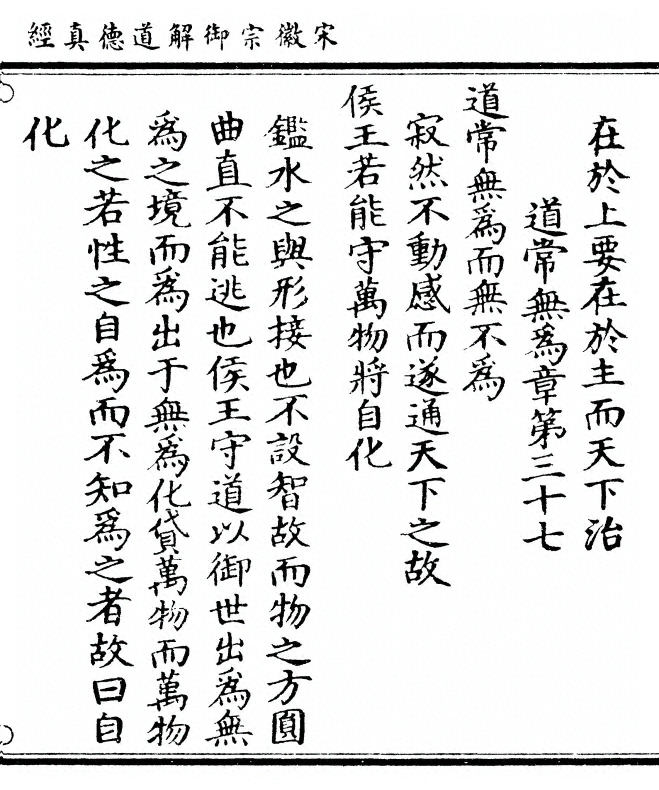 宋徽宗御解道德真經
在於上要在於主而天下治
道常無爲章第三十七
道常無爲而無不爲
寂然不動感而遂通天下之故
侯王若能守萬物將自化
鑑水之與形接也不設智故而物之方圓
曲直不能逃也侯王守道以御世出爲無
爲之境而爲出于無爲化貸萬物而萬物
化之若性之自爲而不知爲之者故曰自
化